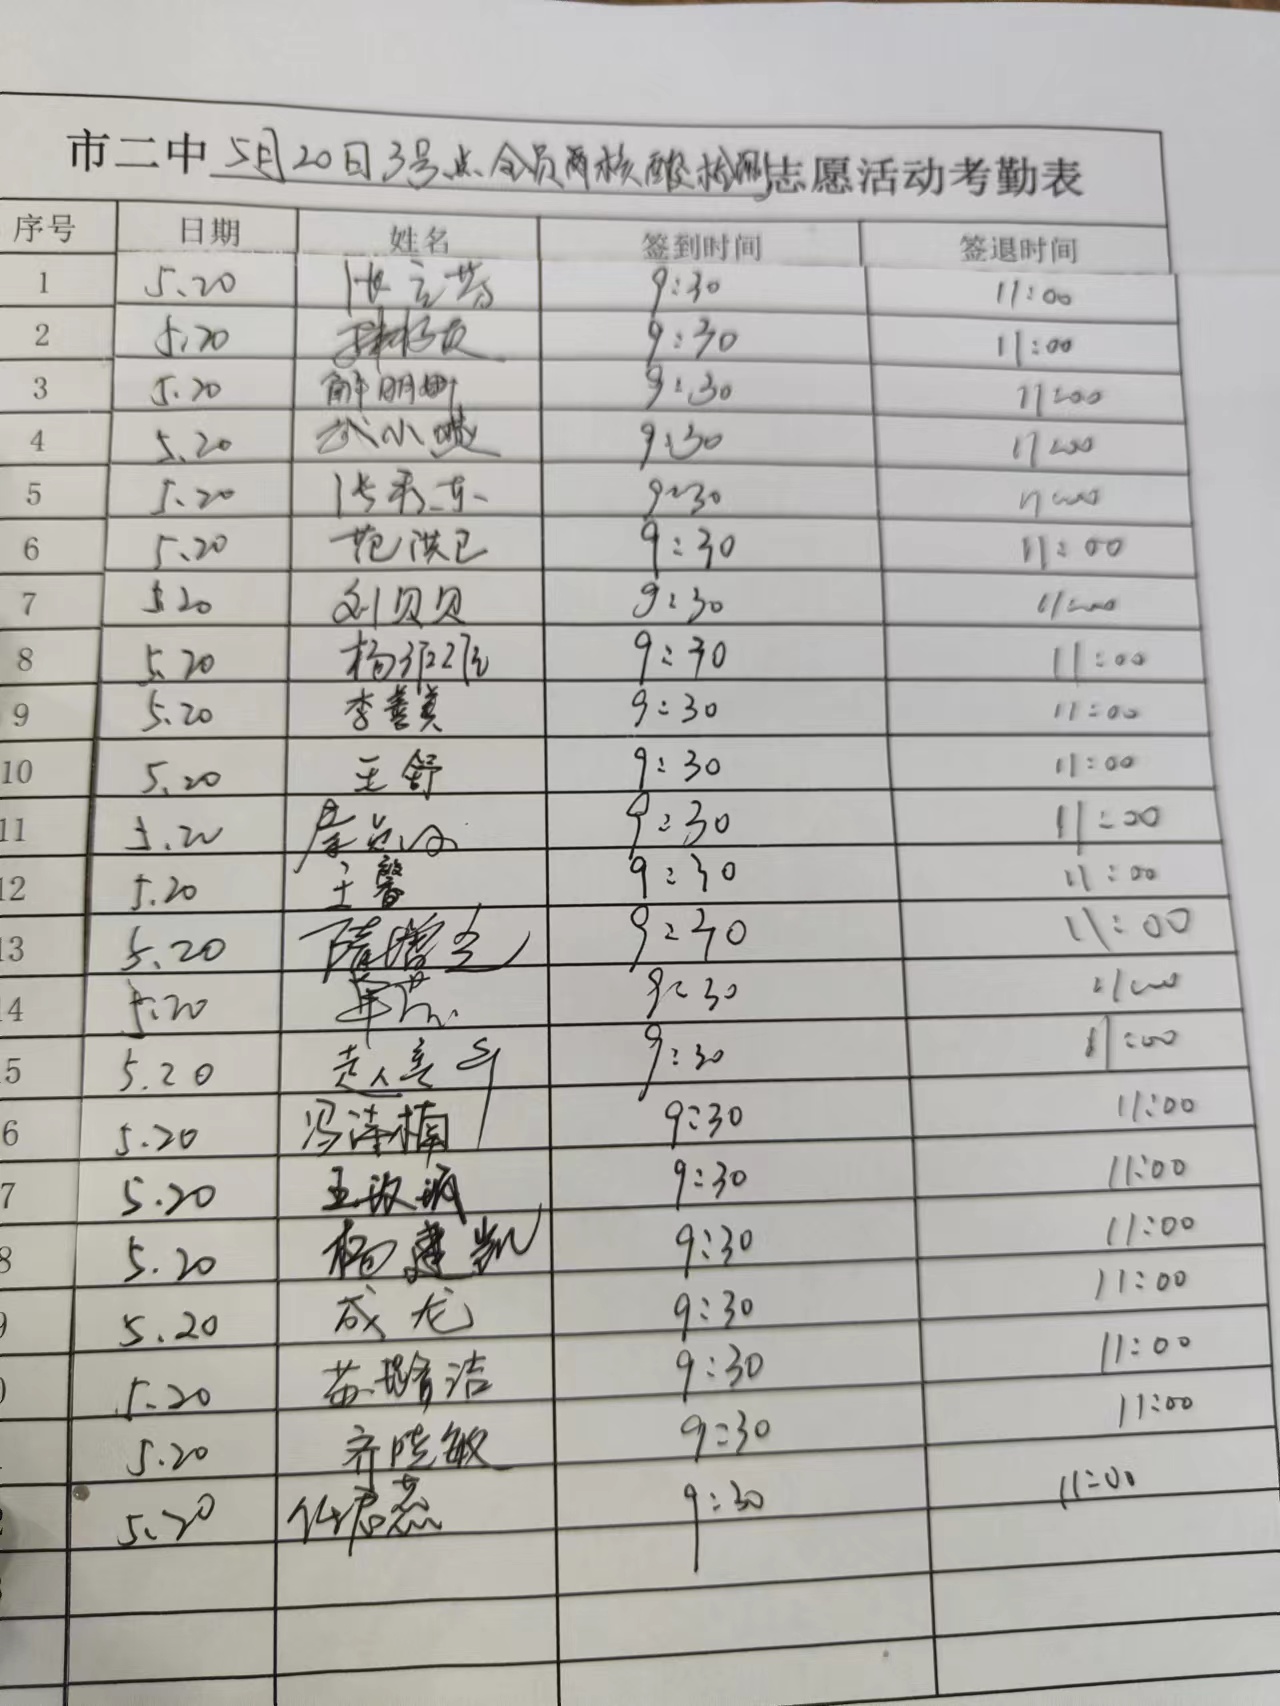 市二中5月20日3号点全员两核酸检测志愿活动考勤表
序号 日期 姓名 签到时间 签退时间
1 5.20 9:30 11:00
2 5.20 9:30 11:00
3 5.20 解明 9:30 11:00
4 5.20 武小 9:30 11:00
5 5.20 张 9:30 11:00
6 5.20 范洪卫 9:30 11:00
7 5.20 刘贝贝 9:30 11:00
8 5.20 杨 9:30 11:00
9 5.20 李善真 9:30 11:00
10 5.20 王舒 9:30 11:00
11 5.20 9:30 11:00
12 5.20 王馨 9:30 11:00
13 5.20 隋增 9:30 11:00
4 5.20 9:30 11:00
5 5.20 赵 9:30 11:00
6 5.20 冯涛楠 9:30 11:00
7 5.20 王 9:30 11:00
8 5.20 杨建凯 9:30 11:00
9 5.20 成龙 9:30 11:00
0 5.20 苏 洁 9:30 11:00
5.20 齐晓敏 9:30 11:00
2 5.20 9:30 11:00